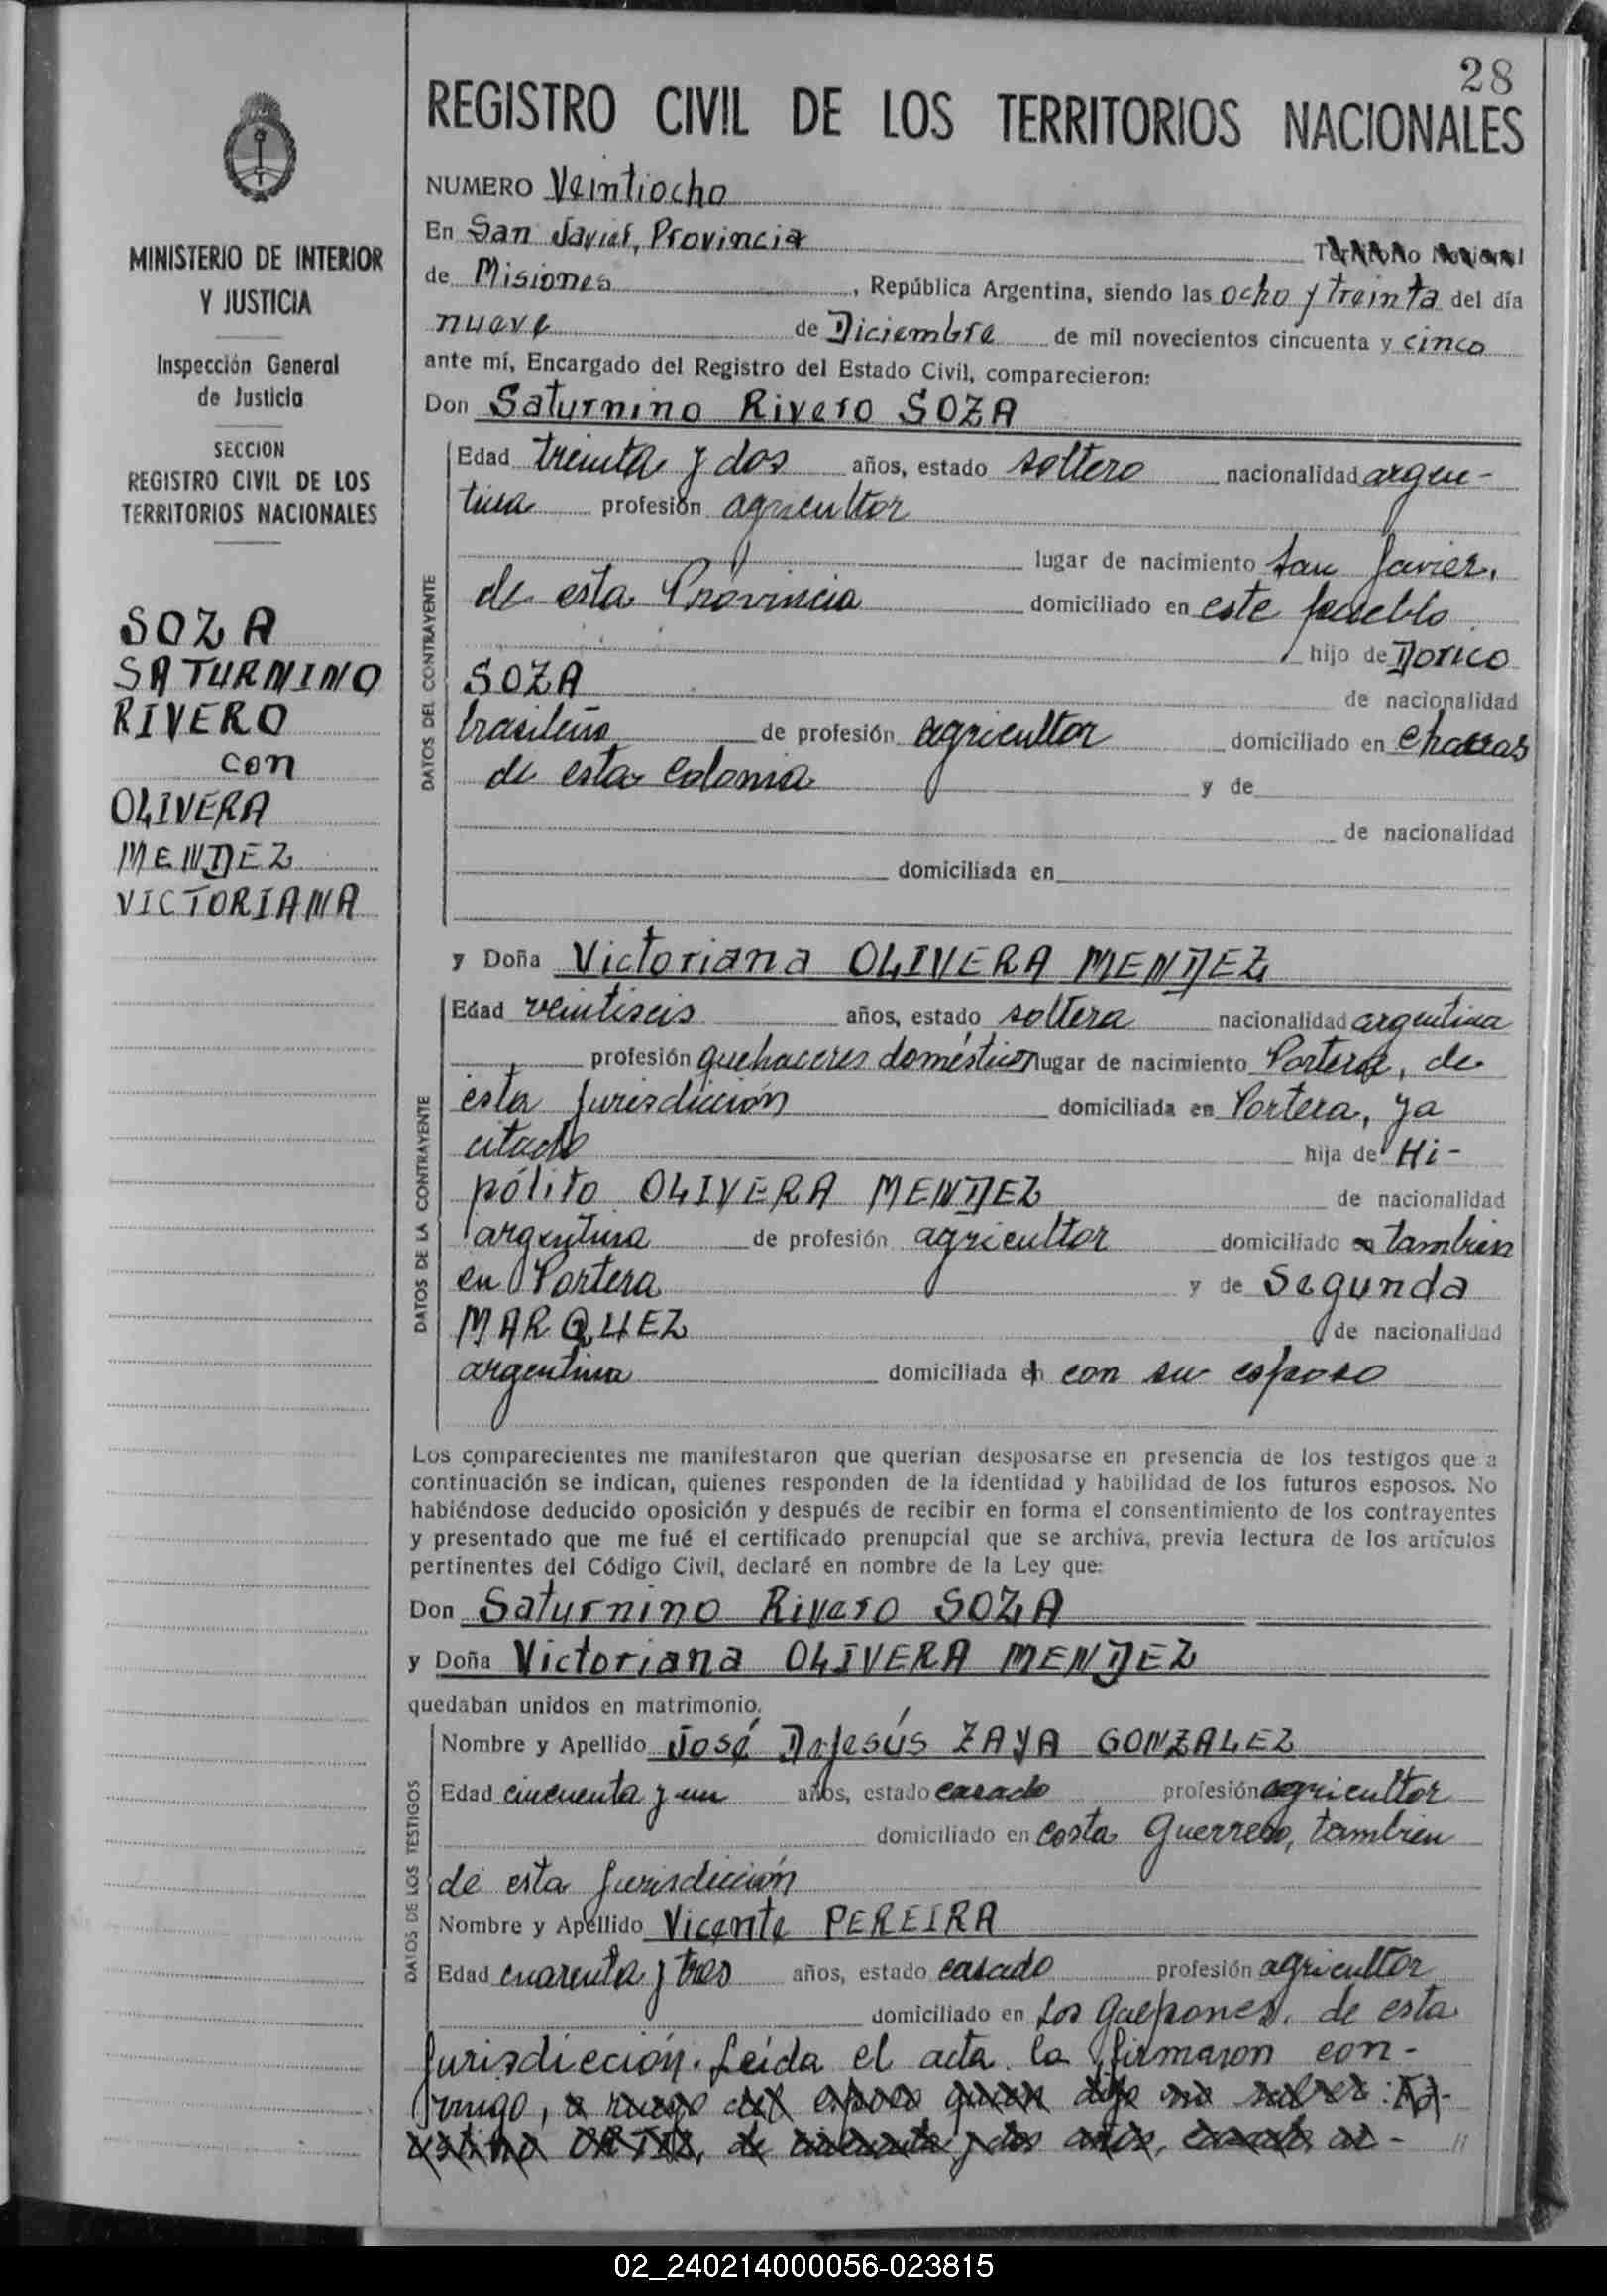 28
REGISTRO CIVIL DE LOS TERRITORIOS NACIONALES
MINISTERIO DE INTERIOR
Y JUSTICIA
Inspección General
de Justicia
SECCION
REGISTRO CIVIL DE LOS
TERRITORIOS NACIONALES
SOZA
SATURNINO
RIVERO
con
OLIVERA
MENDEZ
VICTORIANA
NUMERO Veintiocho
En San Javier, Provincia Territorio Nacional
de Misiones, República Argentina, siendo las ocho y treinta del día
nueve de Diciembre de mil novecientos cincuenta y cinco
ante mí, Encargado del Registro del Estado Civil, comparecieron:
Don Saturnino Rivero SOZA
DATOS DEL CONTRAYENTE
Edad treinta y dos años, estado soltero nacionalidad argen-
tina profesión agricultor
lugar de nacimiento San Javier,
de esta Provincia domiciliado en este pueblo
hijo de Dorico
SOZA de nacionalidad
brasileño de profesión agricultor domiciliado en chacras
de esta colonia y de
de nacionalidad
domiciliada en
y Doña Victoriana OLIVERA MENDEZ
DATOS DE LA CONTRAYENTE
Edad veintiseis años, estado soltera nacionalidad argentina
profesión quehaceres domésticos lugar de nacimiento Portera, de
esta jurisdicción domiciliada en Portera, ya
citado hija de Hi-
pólito OLIVERA MENDEZ de nacionalidad
argentina de profesión agricultor domiciliado en tambien
en Portera y de Segunda
MARQUEZ de nacionalidad
argentina domiciliada en con su esposo
Los comparecientes me manifestaron que querían desposarse en presencia de los testigos que a
continuación se indican, quienes responden de la identidad y habilidad de los futuros esposos. No
habiéndose deducido oposición y después de recibir en forma el consentimiento de los contrayentes
y presentado que me fué el certificado prenupcial que se archiva, previa lectura de los artículos
pertinentes del Código Civil, declaré en nombre de la Ley que:
Don Saturnino Rivero SOZA
y Doña Victoriana OLIVERA MENDEZ
quedaban unidos en matrimonio.
DATOS DE LOS TESTIGOS
Nombre y Apellido José DeJesús ZAYA GONZALEZ
Edad cincuenta y un años, estado casado profesión agricultor
domiciliado en costa Guerrero, tambien
de esta jurisdicción
Nombre y Apellido Vicente PEREIRA
Edad cuarenta y tres años, estado casado profesión agricultor
domiciliado en Los Galpones, de esta
jurisdicción. Leída el acta la firmaron con-
migo, a ruego del esposo quien dijo no saber:
ORTIZ, de cincuenta y dos años, casado, ar-
02_240214000056-023815